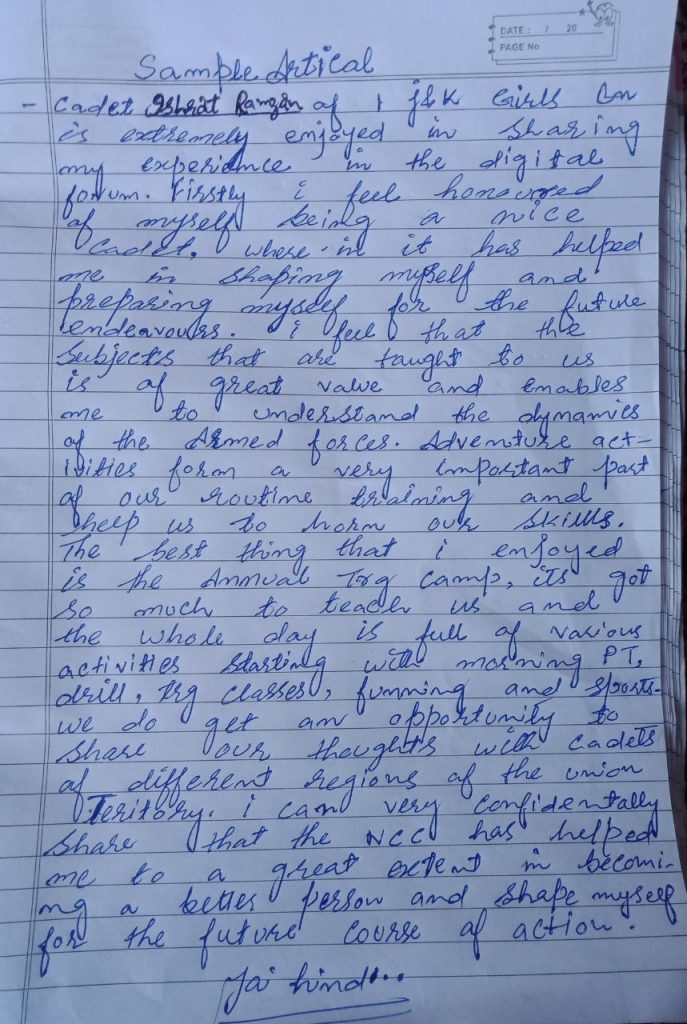 DATE: / 20
PAGE No
Sample Artical
- Cadet Ishrat Ramzan of 1 J&K Girls Bn
is extremely enjoyed in sharing
my experience in the digital
forum. Firstly i feel honoured
of myself being a nice
Cadet, where-in it has helped
me in shaping myself and
preparing myself for the future
endeavours. i feel that the
subjects that are taught to us
is of great value and enables
me to understand the dynamics
of the Armed forces. Adventure act-
ivities form a very important part
of our routine training and
help us to horn our skills.
The best thing that i enjoyed
is the Annual Trg Camp, its got
so much to teach us and
the whole day is full of various
activities starting with morning PT,
drill, trg classes, funning and sports.
we do get an opportunity to
share our thoughts with cadets
of different regions of the union
Teritory. i can very confidentally
share that the NCC has helped
me to a great extent in becomi-
ng a better person and shape myself
for the future course of action.
Jai hind...